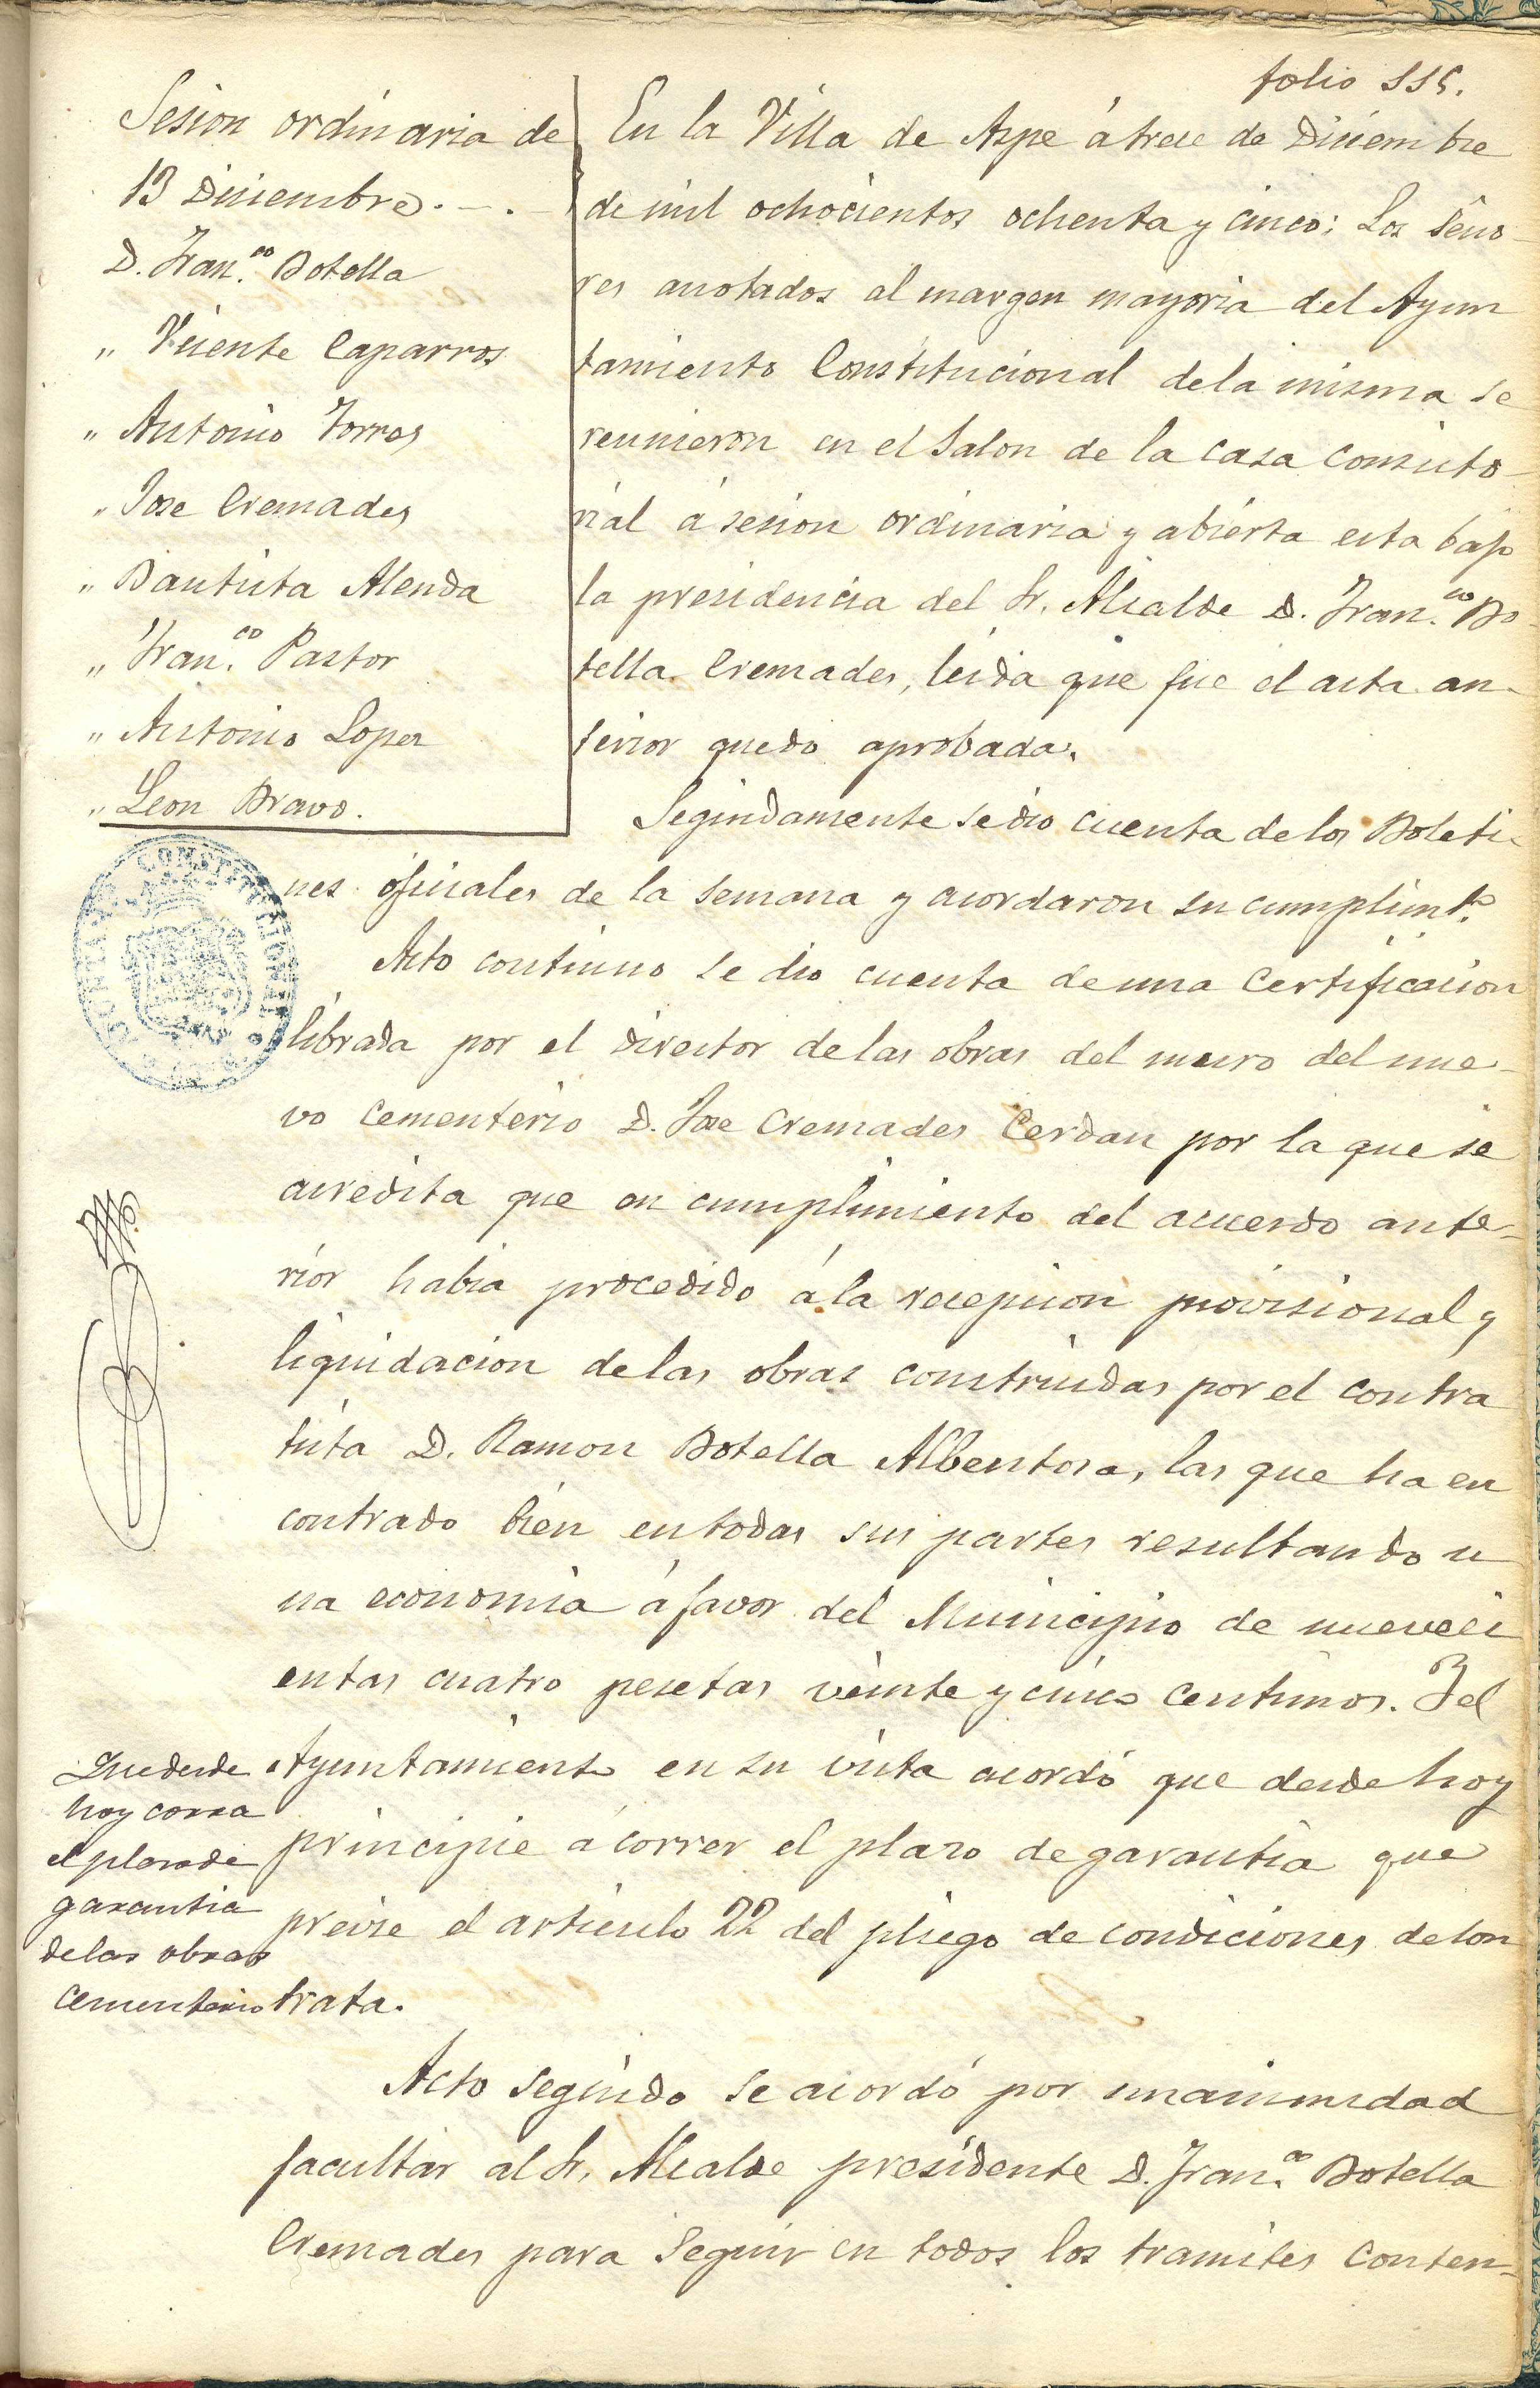 folio 115.
Sesion ordinaria de
13 Diciembre. - . -
D. Fran.co Botella
" Vicente Caparros
" Antonio Torres
" Jose Cremades
" Bautista Alenda
" Fran.co Pastor
" Antonio Lopez
" Leon Bravo.
En la Villa de Aspe á trece de Diciembre
de mil ochocientos ochenta y cinco; Los Seño-
res anotados al margen mayoria del Ayun
tamiento Constitucional dela misma se
reunieron en el Salon de la casa Consisto-
rial á sesion ordinaria y abierta esta bajo
la presidencia del Sr. Alcalde D. Fran.co Bo-
tella Cremades, leida que fue el acta an-
terior quedo aprobada.
Segundamente se dio cuenta de los Boleti-
nes oficiales de la Semana y acordaron su cumplimt.o
CONSTITUCIONAL
Acto continuo se dio cuenta de una Certificacion
librada por el director de las obras del muro del nue-
vo Cementerio D. Jose Cremades Cerdan por la que se
acredita que en cumplimiento del acuerdo ante-
rior habia procedido á la recepcion provisional y
liquidacion de las obras construidas por el contra
tista D. Ramon Botella Albentosa, las que ha en
contrado bien en todas sus partes resultando u
na economia á favor del Municipio de nueveci
entas cuatro pesetas veinte y cinco Centimos. Y el
Ayuntamiento en su vista acordó que desde hoy
principie á correr el plazo de garantia que
previe el articulo 22 del pliego de condiciones de con
trata.
Que desde
hoy corra
el plazo de
garantia
de las obras
Cementerio
Acto segundo se acordó por unanimidad
facultar al Sr. Alcalde presidente D. Fran.co Botella
Cremades para Seguir en todos los tramites Conten-